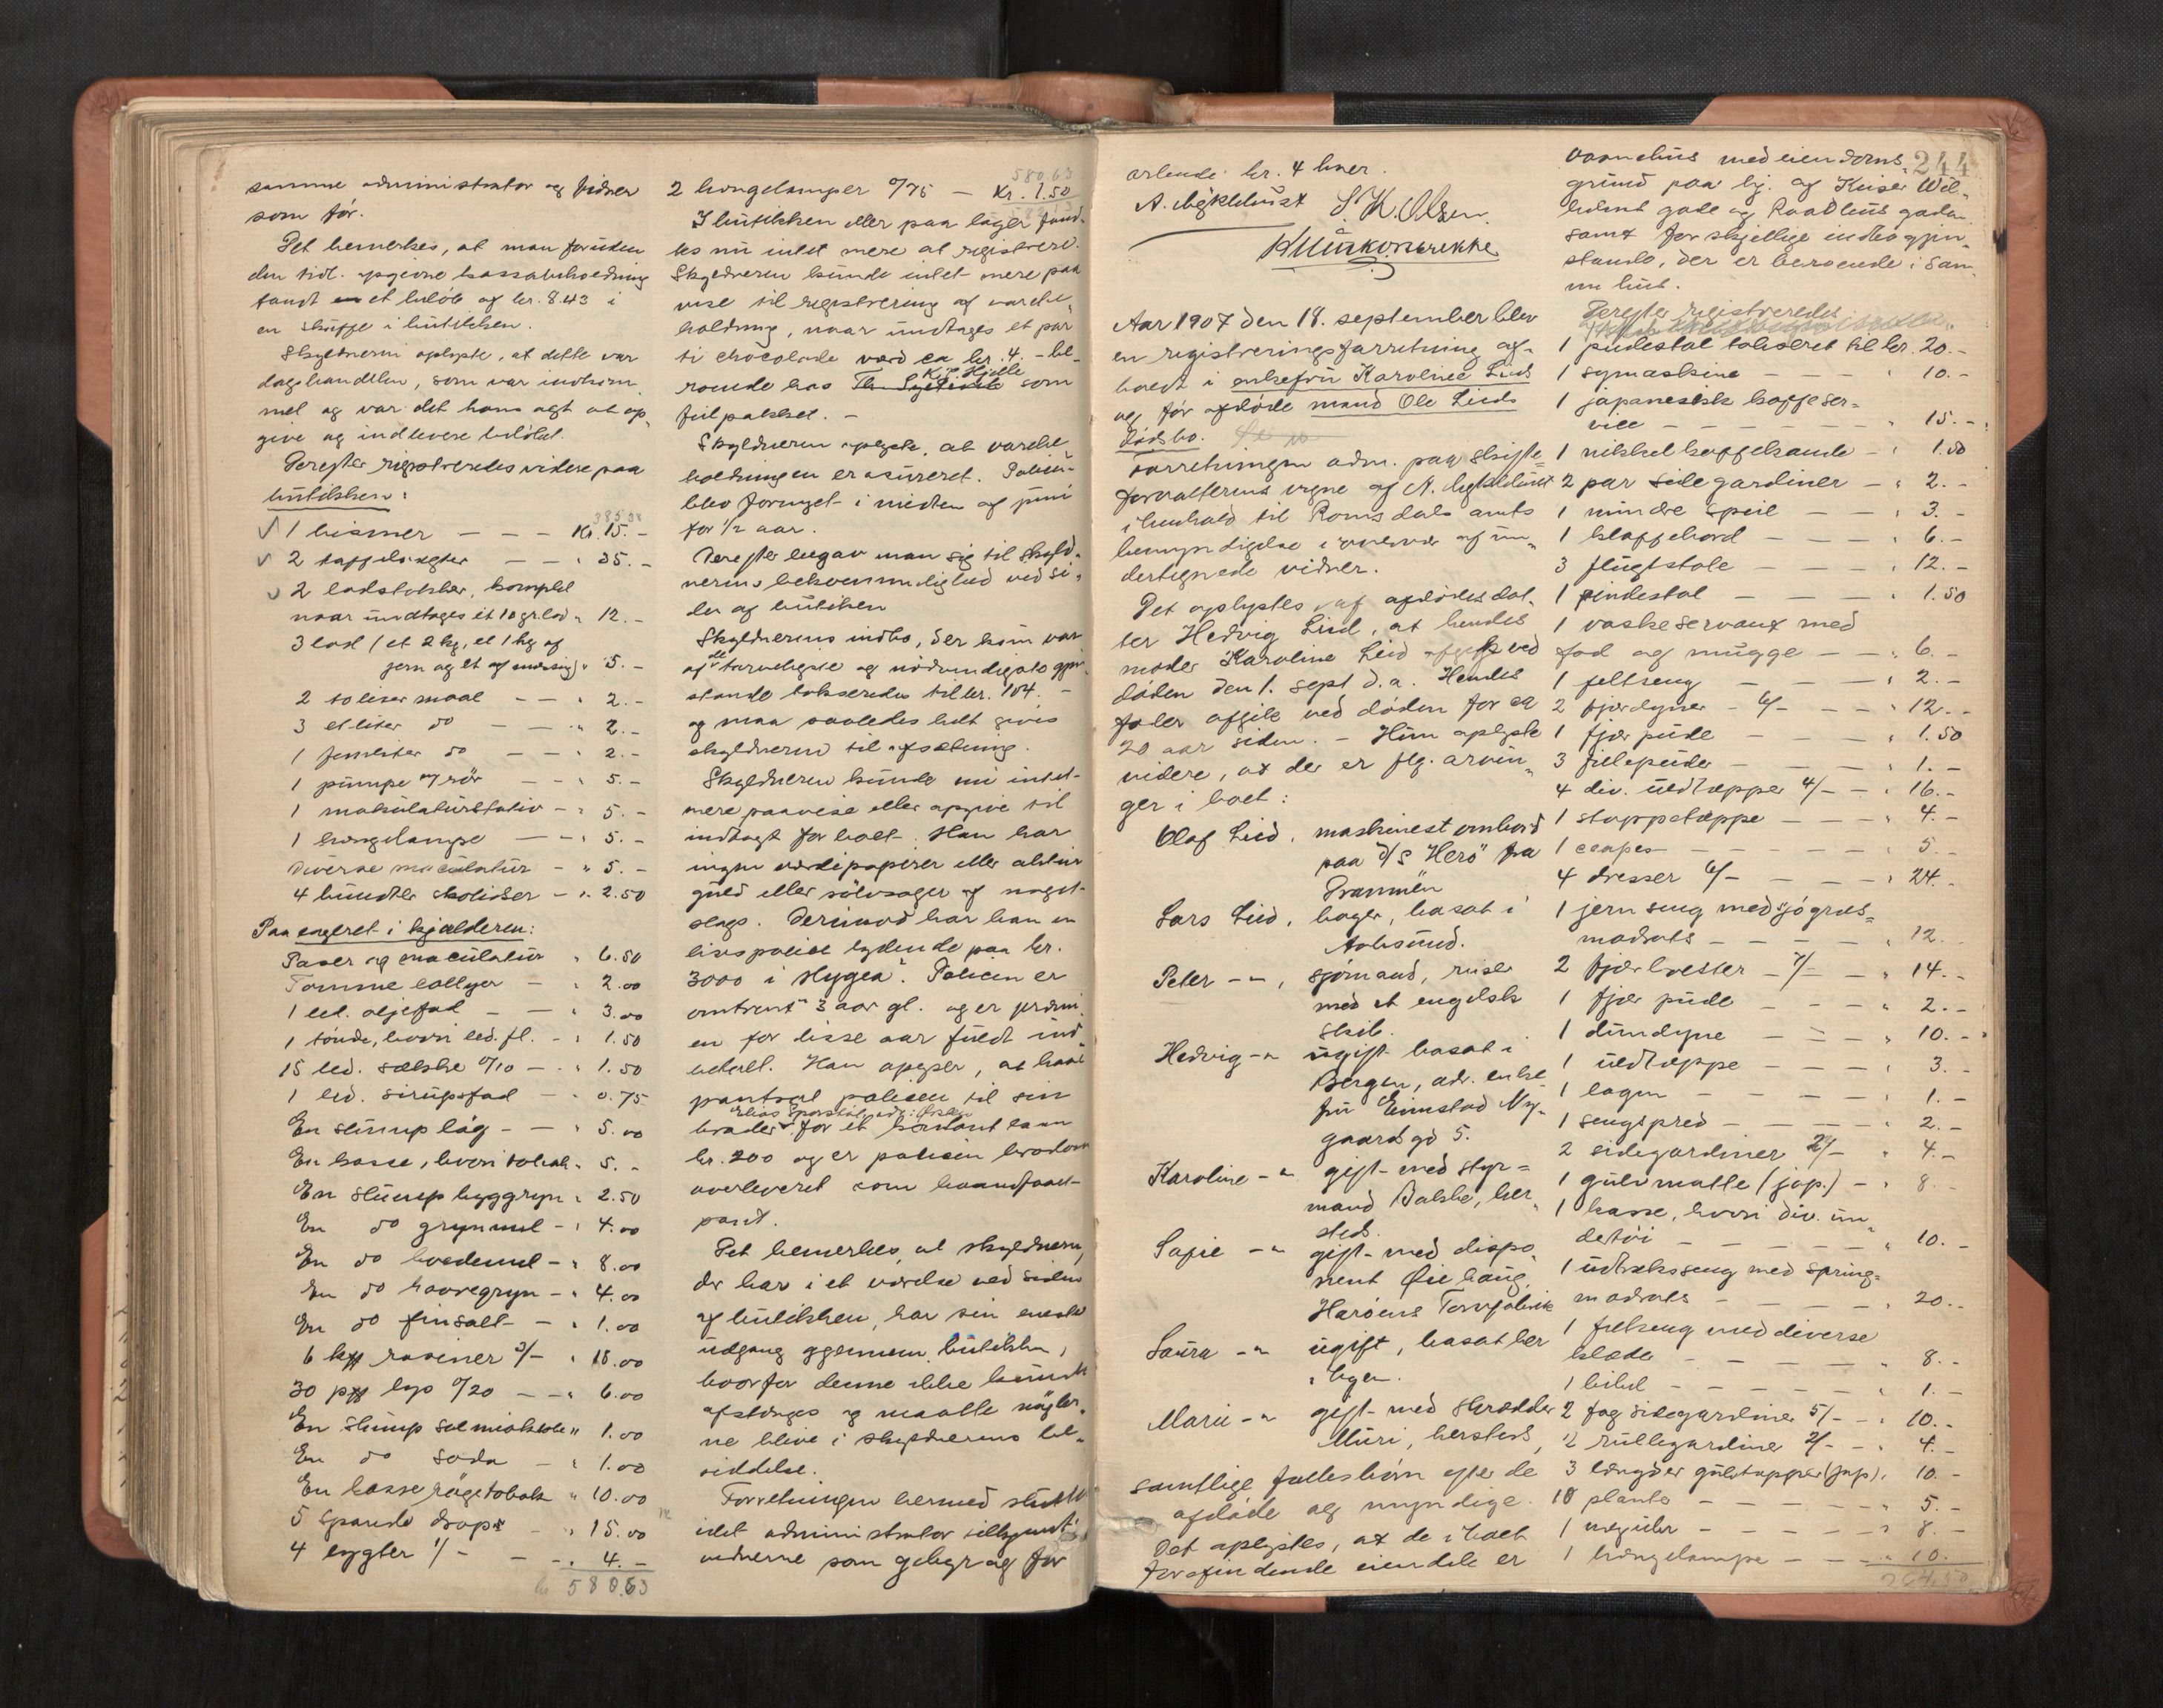 samme administrator og vidner
som før.
Det bemerkes, at man foruden
den tidl. opgivne kassabeholdning
fandt et beløb af kr. 8.43 i
en skuffe i butikken.
Skyldneren oplyste, at dette var
dagshandelen, som var indkom
met og var det hans agt at op„
give og indlevere beløbet.
Derefter registreredes videre paa
butikken:
385.38
1 bismer — — — Kr. 15.-
2 taffelvægter — — " 35.-
2 lodstokker, komplet
naar undtages et 10 gr. lod " 12.-
3 lod (et 2 kg, et 1 kg af
jern og et af messing) " 5.-
2 toliser maal — — " 2.-
3 etliter do — — " 2.-
1 femliter do — — " 2.-
1 pumpe m/ rør — — " 5.-
1 makulaturstativ — " 5.-
1 hængelampe — — " 5.-
Diverse maculatur — " 5.-
4 bundter skolisser — " 2.50
Paa lageret i kjælderen:
Poser og maculatur " 6.50
Tomme ballger — " 2.00
1 led. oljefad — — " 3.00
1 tønde, hvori led. fl. — " 1.50
15 led. sække a/10 — " 1.50
1 led. sirupsfad — " 0.75
En slump løg — — " 5.00
En kasse, hvori tobak " 5.-
En slump byggryn " 2.50
En do grynmel — " 4.00
En do hvedemel — " 8.00
En do havregryn — " 4.00
En do finsalt — " 1.00
6 rosiner 3/- " 18.00
30 lys a/20 — — " 6.00
En slump salmiakstok " 1.00
En do soda — " 1.00
En kasse røgetobak " 10.00
5 spande drops — " 15.00
4 lygter 1/- — — " 4.-
kr 580.63
580.63
2 hængelamper a/75 — Kr. 1.50
I butikken eller paa lager fand„
tes nu intet mere at registrere.
Skyldneren kunde intet mere paa
vise til registrering af varebe„
holdning, naar undtages et par
ti chocolade værd ca kr. 4.- be„
K. P. Hjelle
roende hos som
feilpakket. —
Skyldneren oplyste, at varebe
holdningen er asureret. Policen
blev fornyet i midten af juni
for 1/2 aar.
Derefter begav man sig til skyld„
nerens bekvemmelighed ved si„
den af butiken
Skyldnerens indbo, der kun var
de
af tarveligste og nødvendigste gjen
stande takseredes til kr. 104.-
og maa saaledes helt gives
skyldneren til afsætning.
Skyldneren kunde nu intet
mere paavise eller opgive til
indtægt for boet. Han har
ingen værdipapirer eller aktier
guld eller sølvsager af noget
slags. Derimod har han en
livspolice lydende paa kr.
3000 i "Hygea". Policen er
omtrent 3 aar gl. og er præmi
en for disse aar fuldt ind
betalt. Han oplyser, at have
pantsat policen til sin
Elias Sporstøl, adr: Ørsten
broder for et kontant laan
kr. 200 og er policen broderen
overleveret som haandfaaet
pant.
Det bemerkes, at skyldneren,
der bor i et værelse ved siden
af butikken, har sin eneste
udgang gjennem butikken,
hvorfor denne ikke kunde
afstænges og maatte nøgler„
ne blive i skyldnerens be„
siddelse.
Forretningen hermed sluttet
idet administrator tilkjendt
vidnerne som gebyr og for
arbeide kr. 4 hver.
A. Myklebust S. K. Olsen.
Aar 1907 den 18. september blev
en registreringsforretning af„
holdt i enkefru Karoline Lieds
og før afdøde mand Ole Lieds
dødsbo.
Forretningen adm. paa skifte„
forvalterens vegne af A. Myklebust
i henhold til Romsdals amts
bemyndigelse i overvær af un„
dertegnede vidner.
Det oplystes af afdødes dat„
ter Hedvig Lied, at hendes
moder Karoline Lied afgik ved
døden den 1. sept. d.a. Hendes
fader afgik ved døden for ca
20 aar siden. — Hun oplyste
videre, at der er flg. arvin„
ger i boet:
Olaf Lied, maskinest ombord
paa D/S "Herø" fra
Drammen
Lars Lied, bager, bosat i
Aalesund.
Peter —"—, sjømand, reiser
med et engelsk
skib.
Hedvig —"— ugift bosat i
Bergen, adr. enke
fru Eimstad Ny„
gaardsgd 5.
Karoline —"— gift med styr=
mand Balske, her„
steds.
Sofie —"— gift med dispo„
nent Øiehaug,
Harøens Tranfabrik
Laura —"— ugift, bosat her
i byen.
Marie —"— gift med skrædder
Muri, hersteds,
samtlige fællesbørn efter de
afdøde og myndige.
Det oplystes, at de i boet
forefindende eiendele er
244
vaanehus med eiendoms„
grund paa hj. af Keiser Wil„
helms gade og Raadhus gaden
samt forskjellige indbogjen„
stande, der er beroende i sam
me hus.
Derefter registreredes
1 pidestal takseret til kr. 20.-
1 symaskine — — — " 10.-
1 japanesisk kaffeser=
vice — — — — " 15.-
1 nikkelkaffekande — " 1.50
2 par sidegardiner — " 2.-
1 mindre speil — — " 3.-
1 klaffebord — — — " 6.-
3 flugtstole — — — " 12.-
1 pindestol — — — " 1.50
1 vaskeservant med
fad og mugge — — " 6.-
1 feltseng — — — " 2.-
2 fjærdyner — 6/- — " 12.-
1 fjær pude — — — " 1.50
3 fillepuder — — — " 1.-
4 div. uldtepper 4/- — " 16.-
1 stoppetæppe — — — " 4.-
1 caapes — — — — " 5
4 dresser 6/- — — — " 24.-
1 jernseng med sjøgræs=
madrats — — — — " 12.
2 fjærbolster — 7/- — " 14.-
1 fjær pude — — — " 2.-
1 dundyne — — — " 10.-
1 uldtæppe — — — " 3.-
1 lagen — — — — " 1.-
1 sengspred — — — " 2.-
2 sidegardiner 2/- " 4.-
1 gulvmatte (jap.) — " 8.-
1 kasse, hvori div. un„
detøi — — — — " 10.-
1 udtræksseng med spring=
madrats — — — — " 20.-
1 feltseng med diverse
klæder — — — — " 8.-
1 bibel — — — — " 1.-
2 fag sidegardiner 5/- — " 10.-
2 rullegardiner 2/- — " 4.-
3 længder gulvtæpper (jap) " 10.-
10 planter — — — — " 5.-
1 regulær — — — — " 8.-
1 hængelampe — — — " 10.
264.50